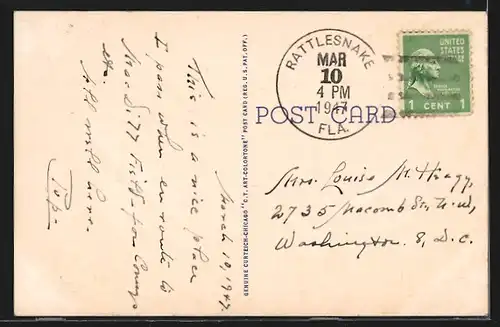 March 10, 1947.
This is a nice place
I pass when en route to
Mrs.
etc.
with
Pop
GENUINE CURTEICH-CHICAGO "C.T. ART-COLORTONE" POST CARD (REG. U.S. PAT. OFF.)
RATTLESNAKE
MAR
10
4 PM
1947
FLA.
UNITED
STATES
POSTAGE
1 CENT 1
POST CARD
Mrs. Louise M.
2735 Macomb St., N.W,
Washington 8, D.C.